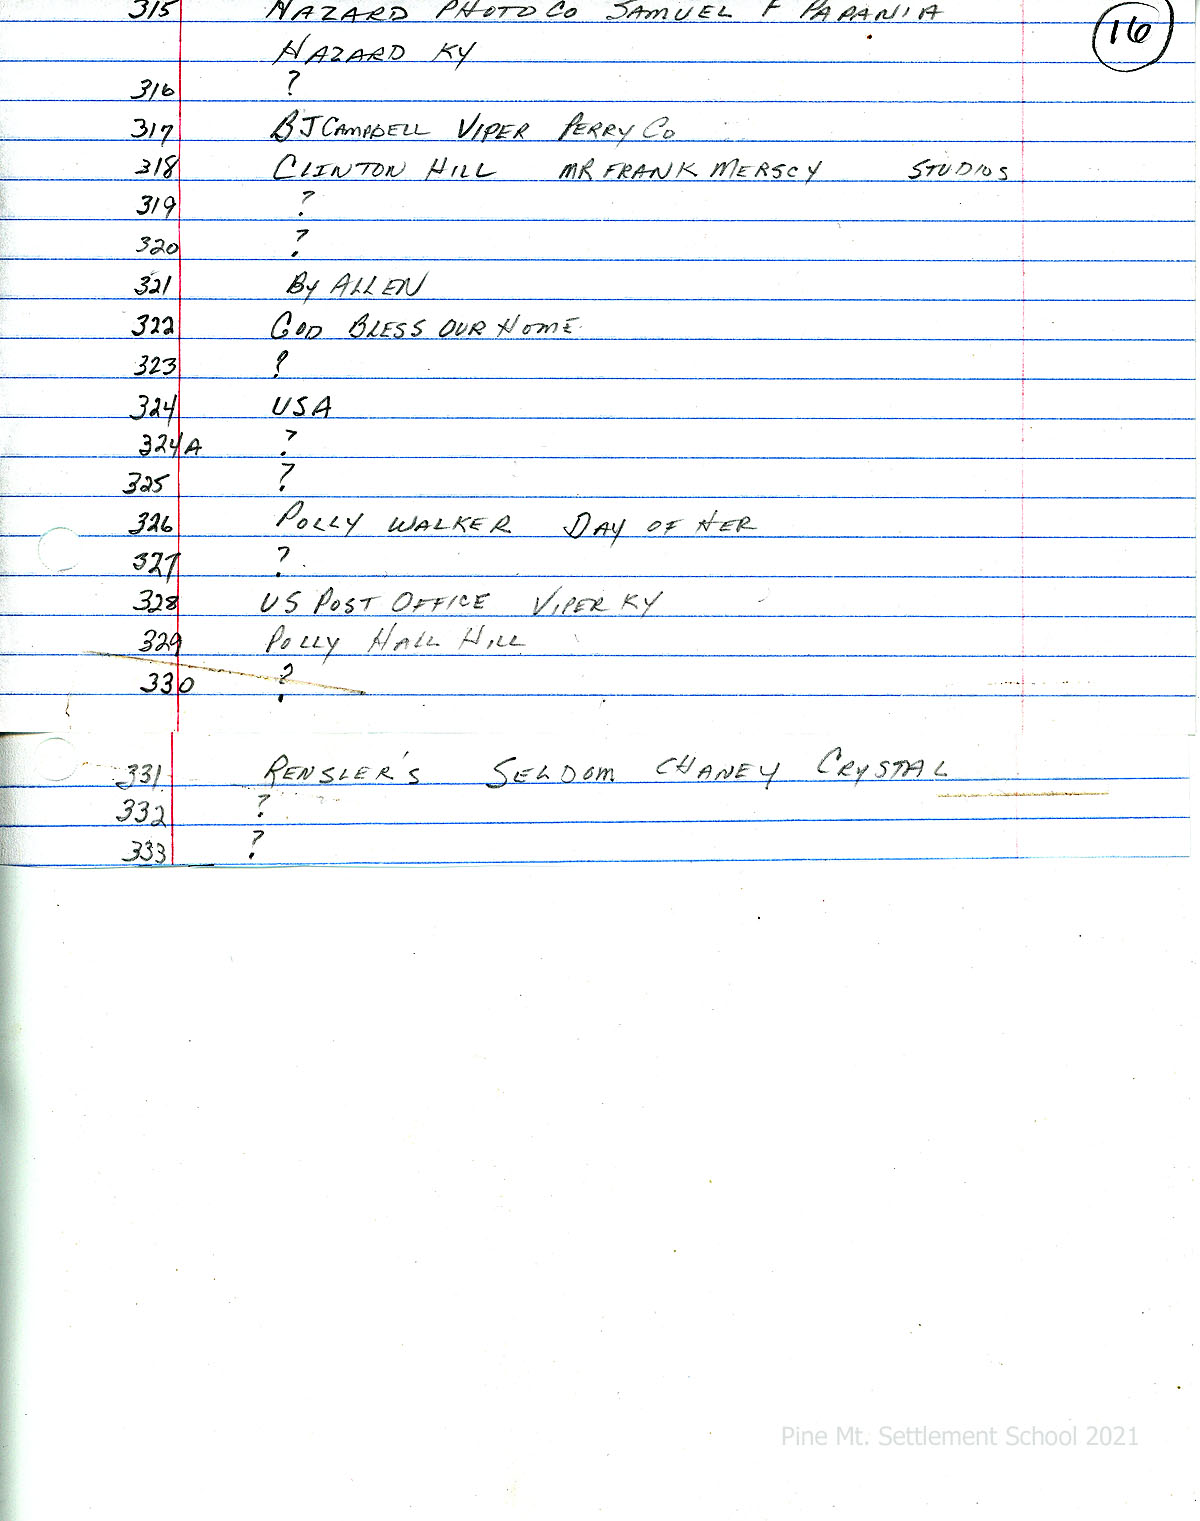 315 HAZARD PHOTO CO SAMUEL F PAPANIA
16
HAZARD KY
316 ?
317 BJ CAMPBELL VIPER PERRY CO
318 CLINTON HILL MR FRANK MERSCY STUDIOS
319 ?
320 ?
321 By ALLEN
322 GOD BLESS OUR HOME
323 ?
324 USA
324A ?
325 ?
326 POLLY WALKER DAY OF HER
327 ?
328 US POST OFFICE VIPER KY
329 POLLY HALL HILL
330 ?
331 RENSLER'S SELDOM CHANEY CRYSTAL
332 ?
333 ?
Pine Mt. Settlement School 2021